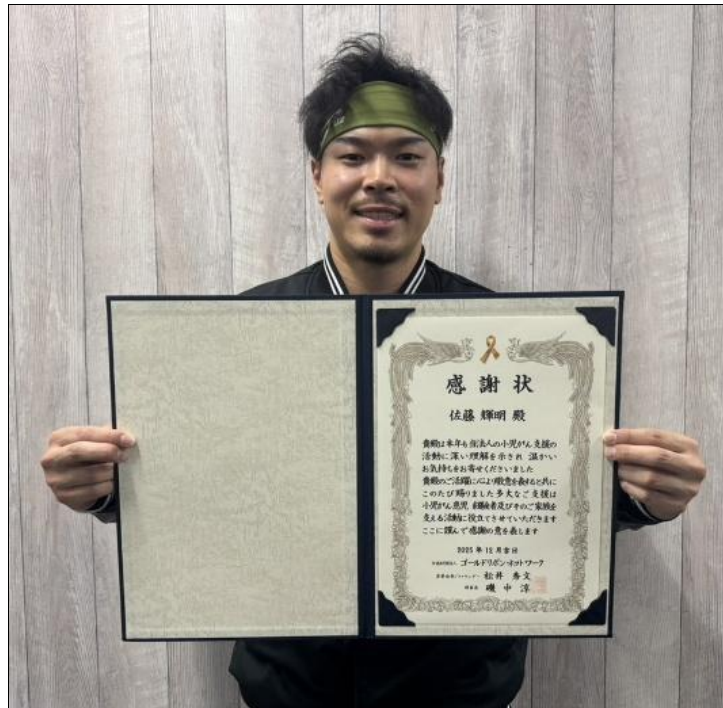 感謝状
佐藤 輝明 殿
貴殿は本年も当法人の小児がん支援の
活動に深い理解を示され 温かい
お気持ちをお寄せくださいました
貴殿のご活躍に心より敬意を表すると共に
このたび賜りました多大なご支援は
小児がん患児 経験者及びそのご家族を
支える活動に役立てさせていただきます
ここに謹んで感謝の意を表します
2025年12月吉日
ゴールドリボン・ネットワーク
松井 秀文
理事長 磯中 淳